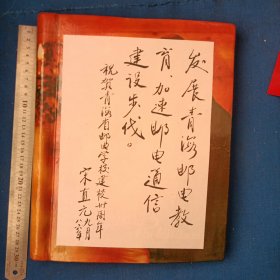 发展青海邮电教
育、加速邮电通信
建设步伐。
祝贺青海省邮电学校建校周年
宋直元
九月